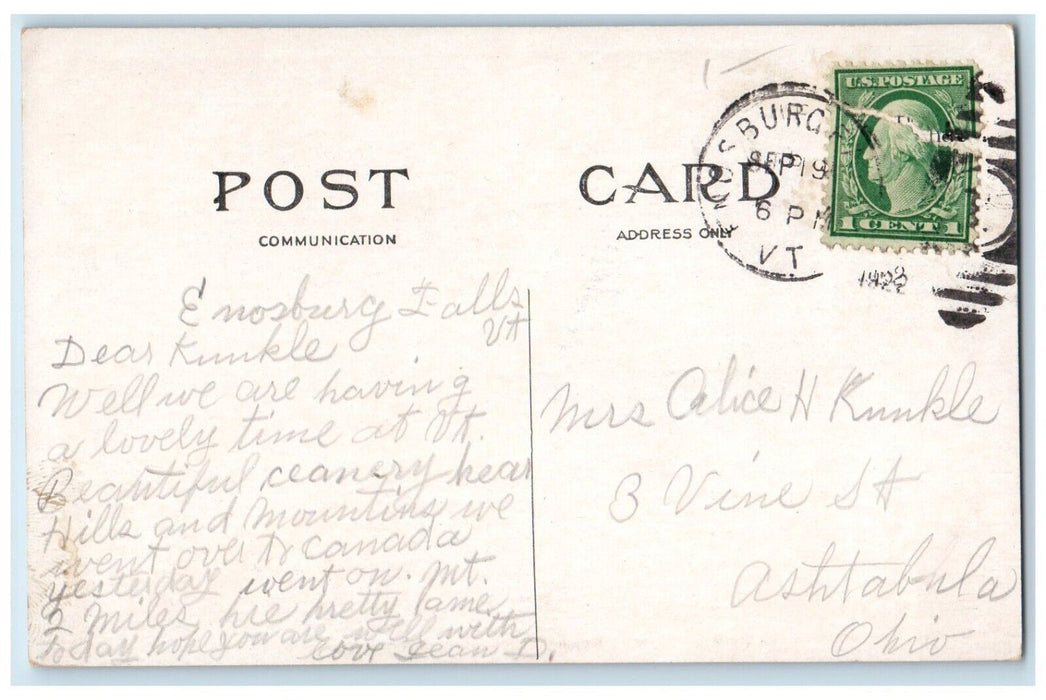 POST CARD
COMMUNICATION
ADDRESS ONLY
BURG
SEP 19
6 PM
VT
U.S. POSTAGE
1 CENT 1
Enosburg Falls
Vt
Dear Kunkle
Well we are having
a lovely time at Vt.
Beautiful ceanery hear
Hills and Mountins we
went over to Canada
yesterday went on. Mt.
2 miles hie pretty lame
today hope you are well with
love Jean D.
Mrs Alice H Kunkle
3 Vine St
Ashtabula
Ohio